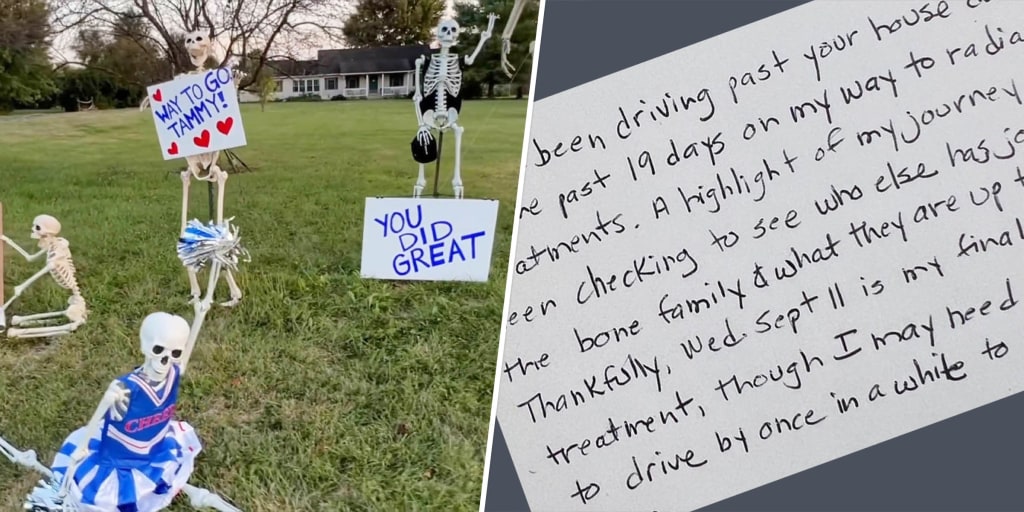 WAY TO GO
TAMMY!
YOU
DID
GREAT
CHEER
been driving past your house
past 19 days on my way to radia
atments. A highlight of my journey
een checking to see who else has jo
the bone family & what they are up t
Thankfully, Wed. Sept 11 is my final
treatment, though I may need
to drive by once in a white to